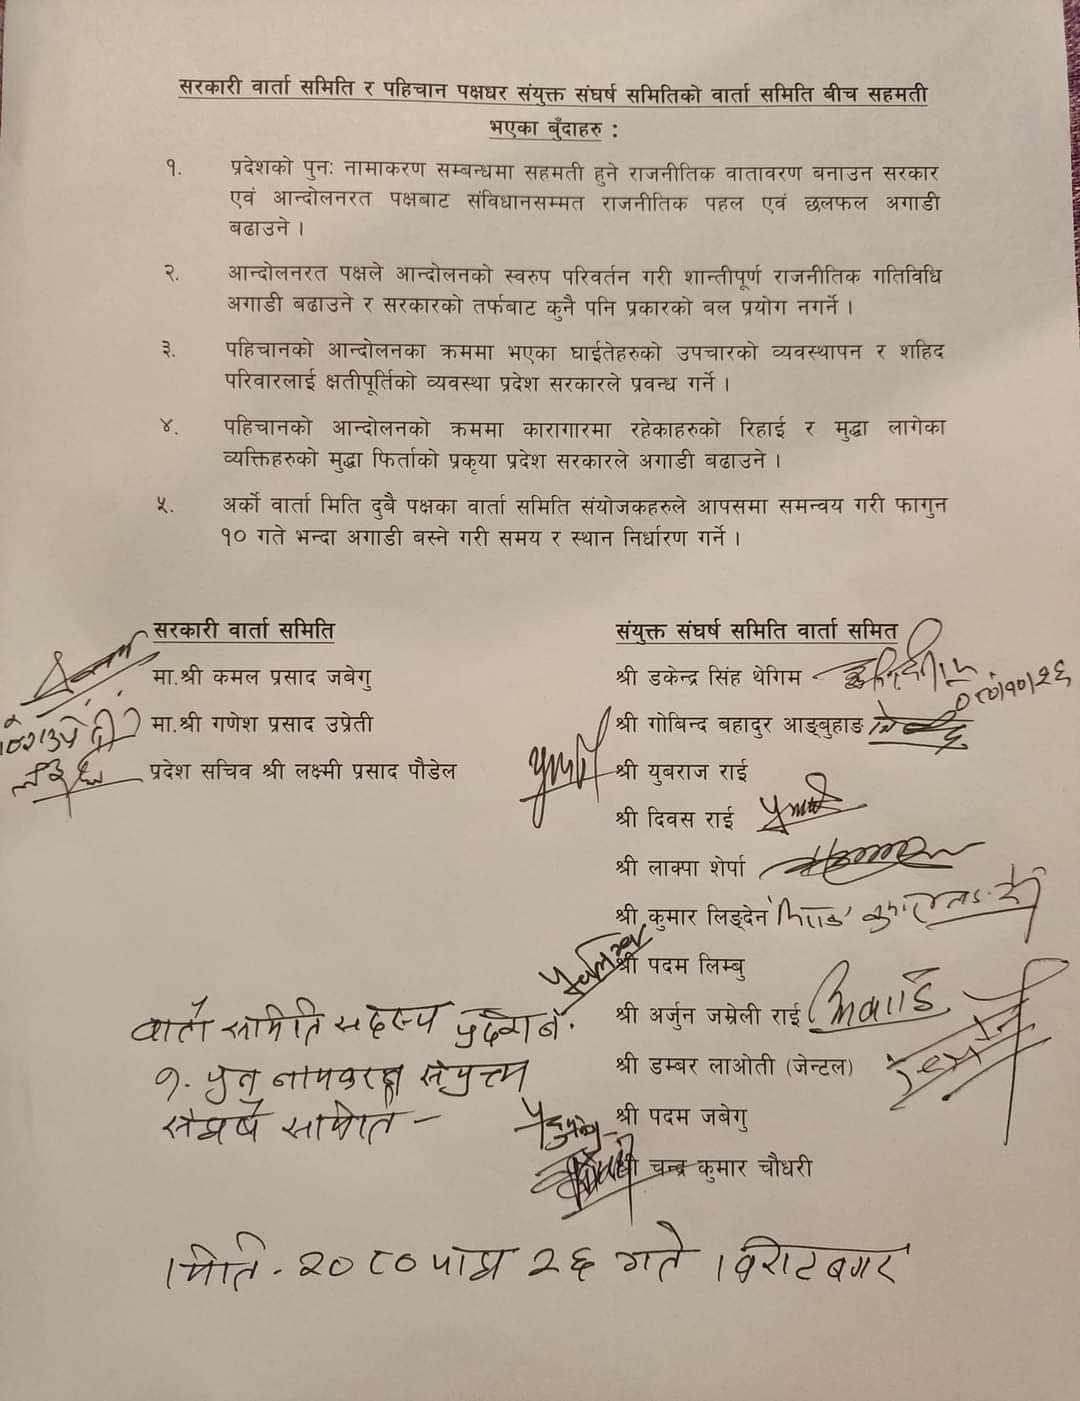 सरकारी वार्ता समिति र पहिचान पक्षधर संयुक्त संघर्ष समितिको वार्ता समिति बीच सहमती
भएका बुँदाहरु :
१. प्रदेशको पुनः नामाकरण सम्बन्धमा सहमती हुने राजनीतिक वातावरण बनाउन सरकार
एवं आन्दोलनरत पक्षबाट संविधानसम्मत राजनीतिक पहल एवं छलफल अगाडी
बढाउने ।
२. आन्दोलनरत पक्षले आन्दोलनको स्वरुप परिवर्तन गरी शान्तीपूर्ण राजनीतिक गतिविधि
अगाडी बढाउने र सरकारको तर्फबाट कुनै पनि प्रकारको बल प्रयोग नगर्ने ।
३. पहिचानको आन्दोलनका क्रममा भएका घाईतेहरुको उपचारको व्यवस्थापन र शहिद
परिवारलाई क्षतीपूर्तिको व्यवस्था प्रदेश सरकारले प्रवन्ध गर्ने ।
४. पहिचानको आन्दोलनको क्रममा कारागारमा रहेकाहरुको रिहाई र मुद्धा लागेका
व्यक्तिहरुको मुद्धा फिर्ताको प्रकृया प्रदेश सरकारले अगाडी बढाउने ।
५. अर्को वार्ता मिति दुबै पक्षका वार्ता समिति संयोजकहरुले आपसमा समन्वय गरी फागुन
१० गते भन्दा अगाडी बस्ने गरी समय र स्थान निर्धारण गर्ने ।
सरकारी वार्ता समिति
मा.श्री कमल प्रसाद जबेगु
मा.श्री गणेश प्रसाद उप्रेती
प्रदेश सचिव श्री लक्ष्मी प्रसाद पौडेल
संयुक्त संघर्ष समिति वार्ता समित
श्री डकेन्द्र सिंह थेगिम
श्री गोबिन्द बहादुर आङ्बुहाङ
श्री युबराज राई
श्री दिवस राई
श्री लाक्पा शेर्पा
श्री कुमार लिङ्देन
श्री पदम लिम्बु
श्री अर्जुन जम्रेली राई
श्री डम्बर लाओती (जेन्टल)
श्री पदम जबेगु
श्री चन्द्र कुमार चौधरी
वार्ता समिति सदस्य प्रदेश नं.
१. पुन नामकरण संयुक्त
संघर्ष समिति -
मिति - २०८० माघ २६ गते । विराटनगर